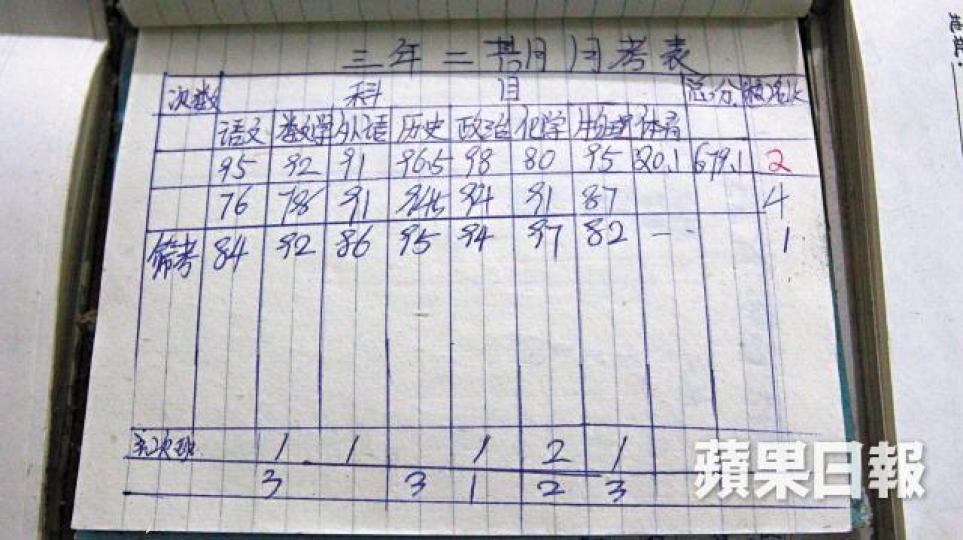 三年二 月月考表
次数 科 目 总分 名次
语文 数学 外语 历史 政治 化学 物理 体育
95 92 91 96.5 98 80 95 679.1 2
76 91 94 91 87 4
84 92 86 95 94 97 82 — 1
次班 1 1 1 2 1
3 3 1 2 3
蘋果日報